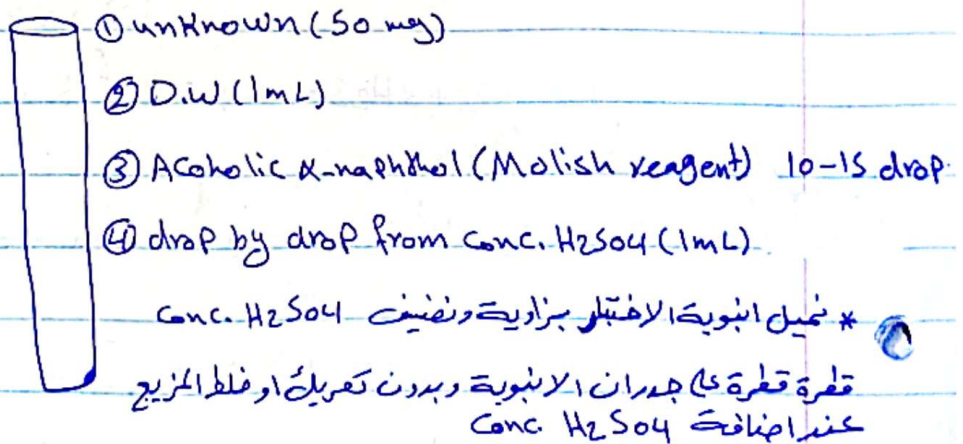 ① unknown (50 mg)
② D.W (1mL)
③ Acoholic α-naphthol (Molish reagent) 10-15 drop
④ drop by drop from conc. H2SO4 (1mL)
* نميل انبوبة الاختبار بزاوية ونضيف conc. H2SO4
قطرة قطرة على جدران الانبوبة وبدون تحريك او خلط المزيج
عند اضافة conc. H2SO4